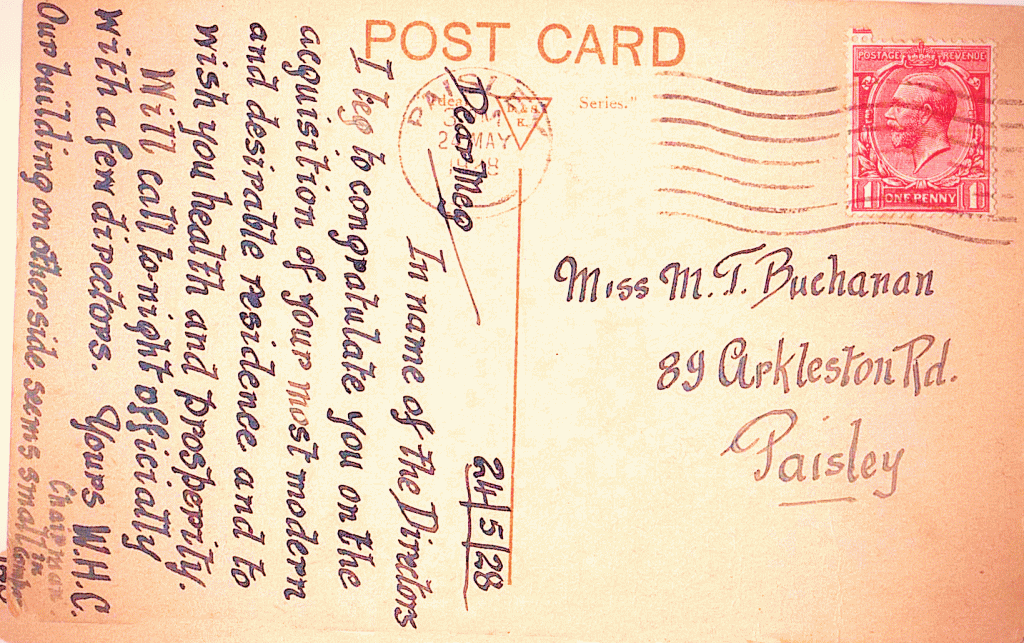 POST CARD
Series."
PAISLEY
MAY
POSTAGE REVENUE
1 ONE PENNY 1
24/5/28
Dear Meg
In name of the Directors
I beg to congratulate you on the
acquisition of your most modern
and desirable residence and to
wish you health and prosperity.
Will call to-night officially
with a few directors. Yours W.H.C.
Chairman.
Our building on other side seems small in
Miss M. T. Buchanan
89 Arkleston Rd.
Paisley